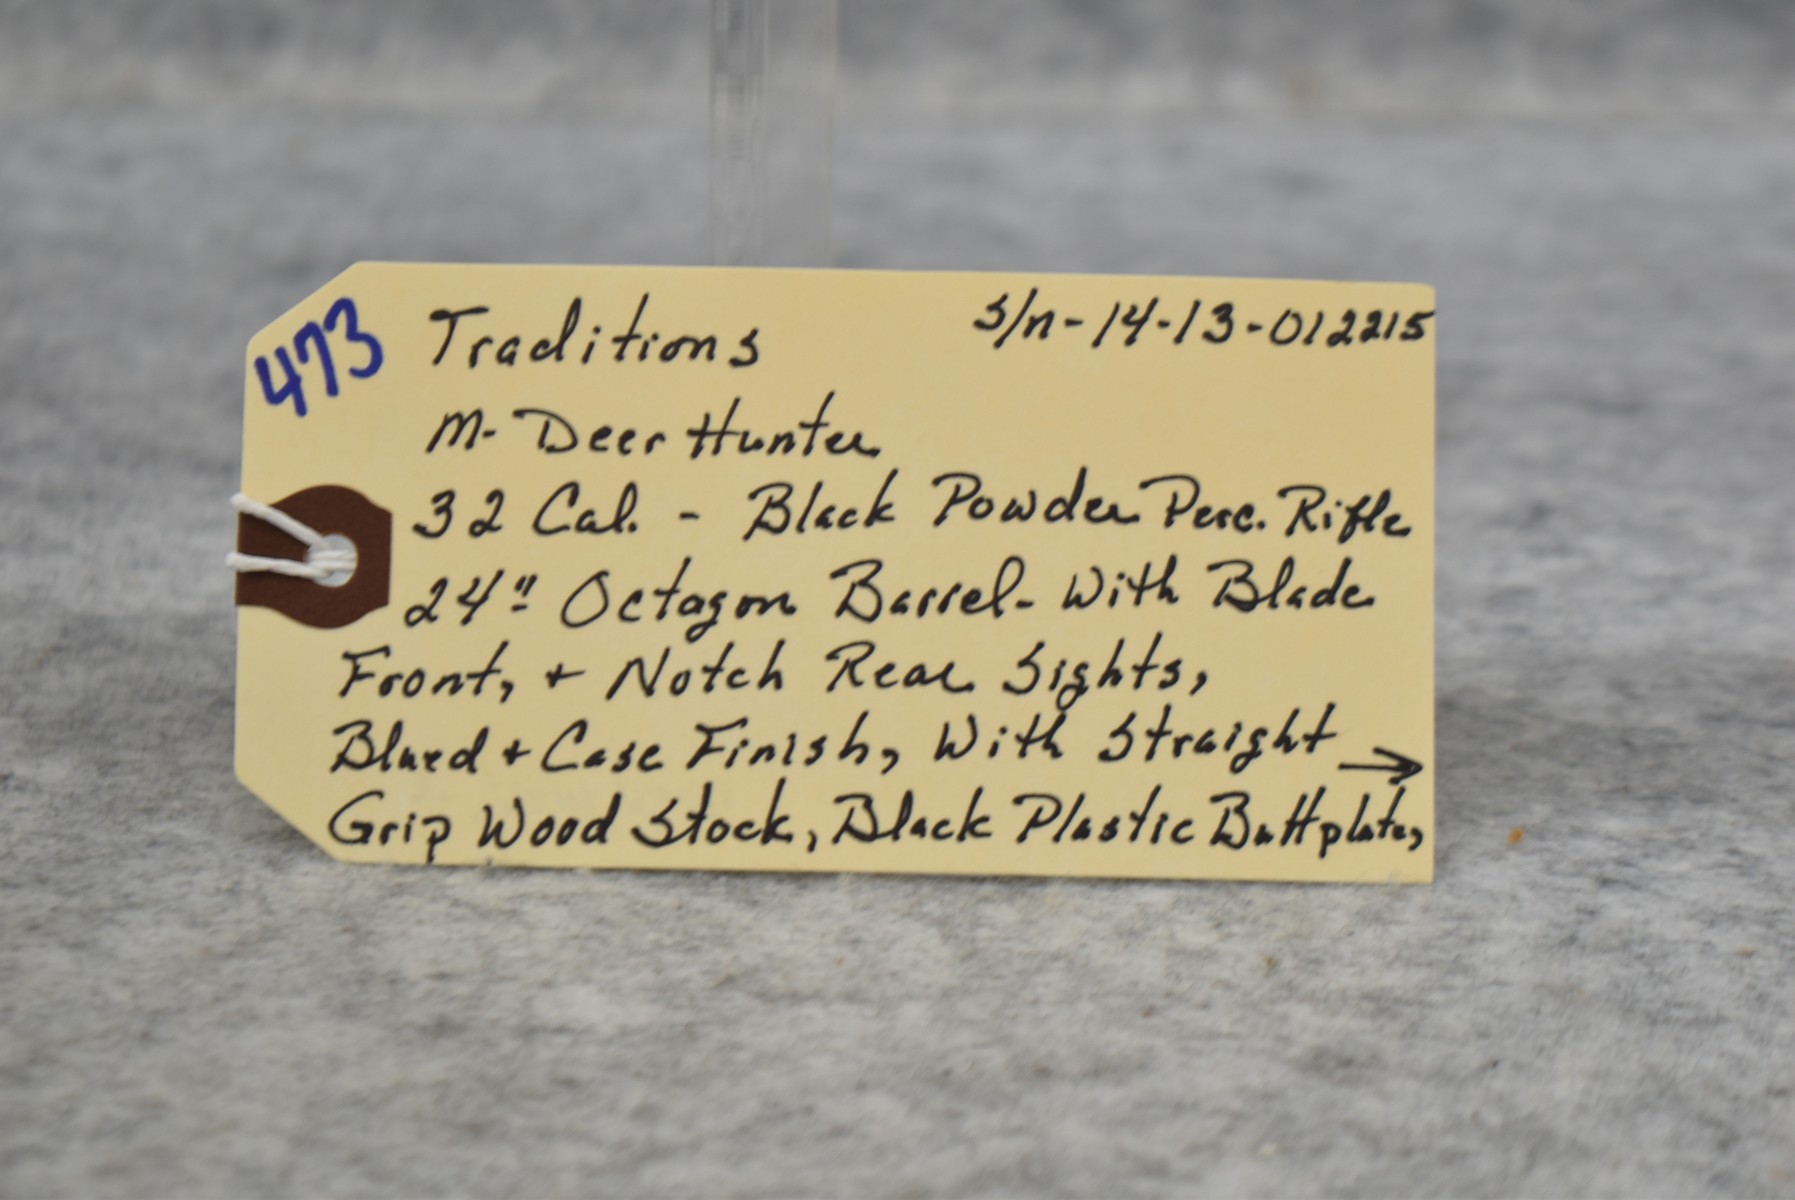 473
Traditions S/n-14-13-012215
M-Deer Hunter
32 Cal. - Black Powder Perc. Rifle
24" Octagon Barrel - With Blade
Front, + Notch Rear Sights,
Blued + Case Finish, With Straight →
Grip Wood Stock, Black Plastic Buttplate,